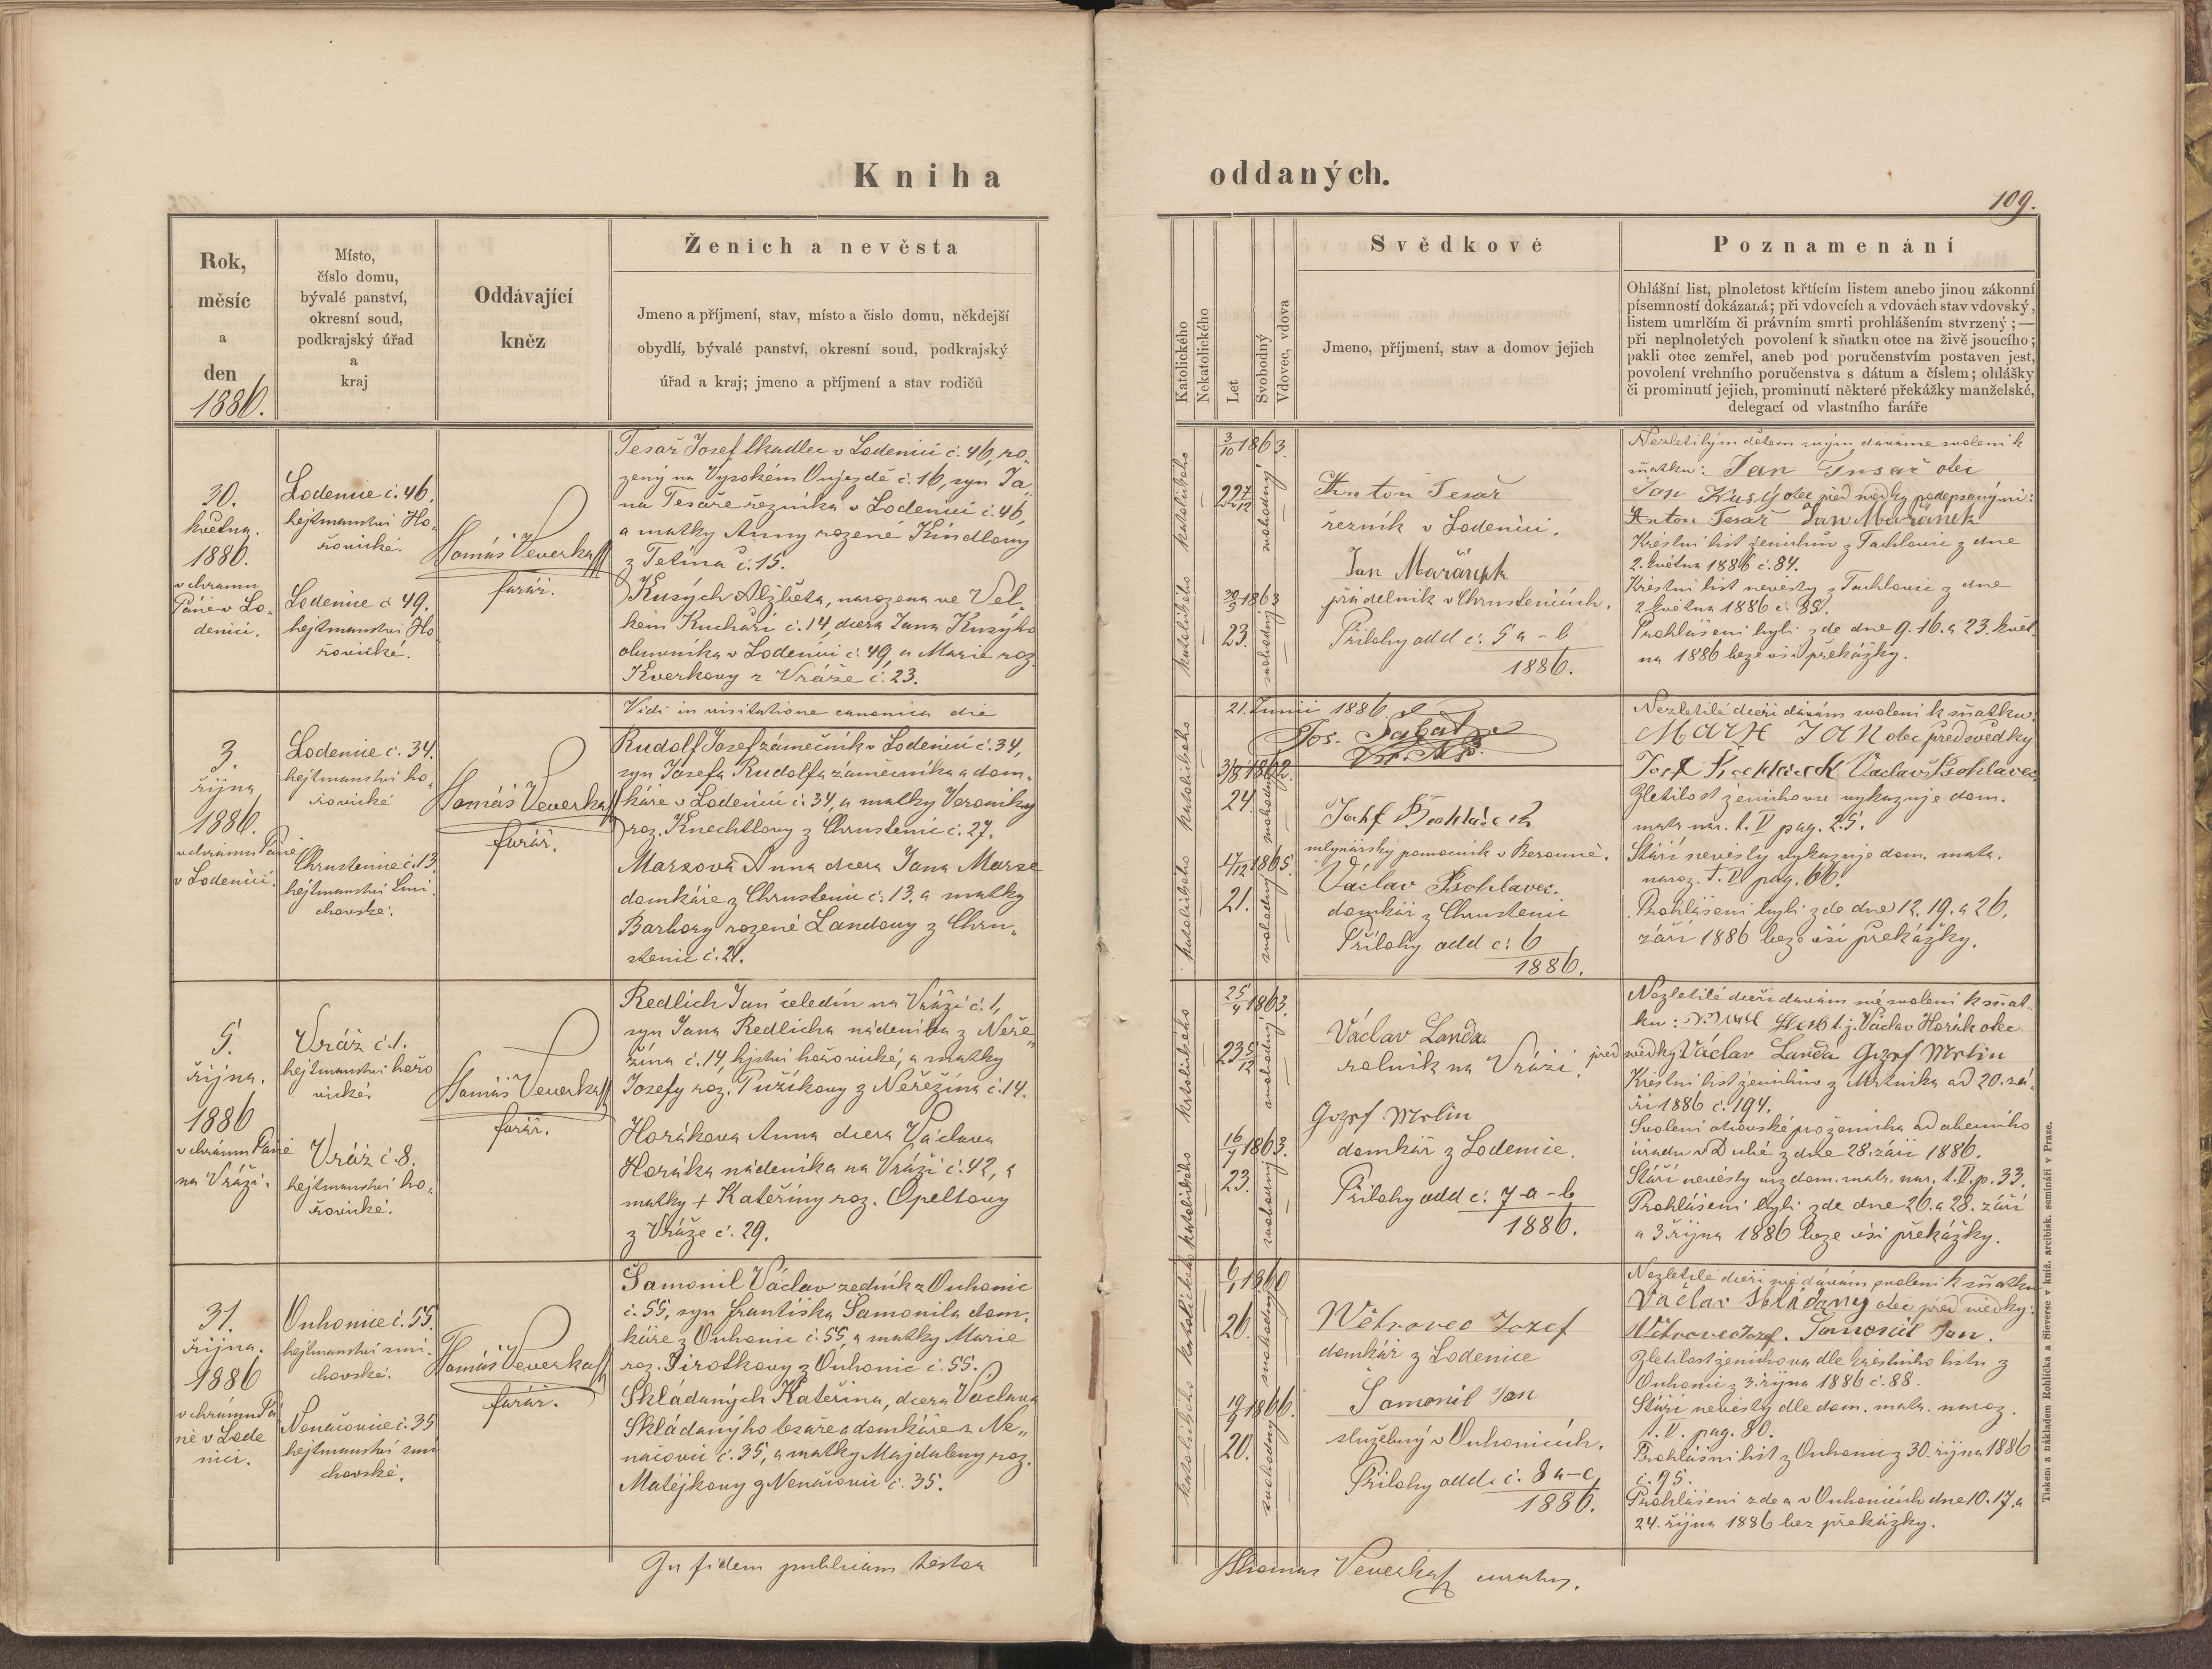 Kniha oddaných.
109.
Rok,
měsíc
a
den
1886.
Místo,
číslo domu,
bývalé panství,
okresní soud,
podkrajský úřad
a
kraj
Oddávající
kněz
Ženich a nevěsta
Jmeno a příjmení, stav, místo a číslo domu, někdejší
obydlí, bývalé panství, okresní soud, podkrajský
úřad a kraj; jmeno a příjmení a stav rodičů
Katolického
Nekatolického
Let
Svobodný
Vdovec, vdova
Svědkové
Jmeno, příjmení, stav a domov jejich
Poznamenání
Ohlášní list, plnoletost křtícím listem anebo jinou zákonní
písemností dokázaná; při vdovcích a vdovách stav vdovský,
listem umrlčím či právním smrti prohlášením stvrzený; —
při neplnoletých povolení k sňatku otce na živě jsoucího;
pakli otec zemřel, aneb pod poručenstvím postaven jest,
povolení vrchního poručenstva s dátum a číslem; ohlášky
či prominutí jejich, prominutí některé překážky manželské,
delegací od vlastního faráře
30.
května.
1886.
v chrámu
Páně v Lo-
denici.
Lodenice č. 46.
hejtmanství Ho-
řovické.
Lodenice č 49.
hejtmanství Ho
řovické.
Tomáš Veverka
farář.
Tesař Josef tkadlec v Lodenici č. 46, ro-
zený na Vysokém Oujezdě č. 16, syn Ja-
na Tesaře řezníka v Lodenici č. 46,
a matky Anny rozené Kindlovy
z Tetína č. 15.
Kusých Alžběta, narozena ve Vel-
kém Kuchaři č. 14, dcera Jana Kusýho
v Lodenici č. 49, a Marie roz.
Kverkovy z Vráže č. 23.
katolického
3/10 1863.
22 7/12
svobodný
katolického
1863
23.
svobodný
Anton Tesař
řezník v Lodenici.
Jan Mařánek
přádelník v Chrustenicích.
Přílohy add č. 5 a - b
1886.
Nezletilým dětem svým dáváme svolení k
sňatku: Jan Tesař otec
Jan Kusý otec před svědky podepsanými:
Anton Tesař Jan Mařánek
Křestní list ženichův z Tachlovic z dne
2. května 1886 č. 84.
Křestní list nevěsty z Tachlovic z dne
2 května 1886 č. 85.
Prohlášeni byli zde dne 9. 16. a 23. květ-
na 1886 beze vší překážky.
Vidi in visitatione canonica die
21. Junii 1886
3.
října
1886.
v chrámu Páně
v Lodenici.
Lodenice č. 34.
hejtmanství ho-
řovické
Chrustenice č. 13.
hejtmanství Smi
chovské.
Tomáš Veverka
farář.
Rudolf Josef zámečník v Lodenici č. 34,
syn Josefa Rudolfa zámečníka a dom-
káře v Lodenici č. 34, a matky Veroniky
roz. Knechtlovy z Chrustenic č. 27.
Marxova Anna dcera Jana Marxe
domkáře z Chrustenic č. 13, a matky
Barbory rozené Landovy z Chru-
stenic č. 21.
katolického
3/8 1862.
24.
svobodný
katolického
17/12 1865.
21.
svobodný
mlynářský pomocník v Berouně.
Václav Psohlavec.
domkář z Chrustenic
Přílohy add č. 6
1886.
Nezletilé dceři dávám svolení k sňatku:
MARX JAN otec před svědky
Václav Psohlavec
Zletilost ženichovu vykazuje dom.
matr. nar. t. V pag. 25.
Stáří nevěsty vykazuje dom. matr.
naroz. t. V pag. 66.
Prohlášeni byli zde dne 12. 19. a 26.
září 1886 beze vší překážky.
5.
října.
1886
v chrámu Páně
na Vráži.
Vráž č. 1.
hejtmanství hořo
vické.
Vráž č. 8.
hejtmanství ho-
řovické.
Tomáš Veverka
farář.
Redlich Jan čeledín na Vráži č. 1,
syn Jana Redlicha nádeníka z Neře-
žína č. 14, hjství hořovické, a matky
Josefy roz. Pužíkovy z Neřežína č. 14.
Horákova Anna dcera Václava
Horáka nádeníka na Vráži č. 42, a
matky + Kateřiny roz. Opeltovy
z Vráže č. 29.
katolického
25/4 1863.
23 5/12
svobodný
katolického
16/7 1863.
23.
svobodný
Václav Landa
rolník na Vráži.
Gozef Mrlin
domkář z Lodenice.
Přílohy add č. 7 a - b
1886.
Nezletilé dceři dávám své svolení k sňat-
ku: t. j. Václav Horák otec
před svědky Václav Landa Gozef Mrlin
Křestní list ženichův z Mrtníka od 20. zá-
ří 1886 č. 194.
Svolení otcovské pro ženicha od obecního
úřadu v Dubé z dne 28. září 1886.
Stáří nevěsty viz dom. matr. nar. t. V. p. 33.
Prohlášeni byli zde dne 26. a 28. září
a 3 října 1886 beze vší překážky.
31.
října.
1886
v chrámu Pá
ně v Lode
nici.
Ouhonice č. 55.
hejtmanství smí-
chovské.
Nenačovice č. 35
hejtmanství smí
chovské.
Tomáš Veverka
farář.
Samonil Václav zedník z Ouhonic
č. 55, syn Františka Samonila dom-
káře z Ouhonic č. 55, a matky Marie
roz. Sirotkovy z Ouhonic č. 55.
Skládaných Kateřina, dcera Václava
Skládanýho tesaře a domkáře z Ne-
načovic č. 35, a matky Majdaleny roz.
Matějkovy z Nenačovic č. 35.
katolického
1860
26.
svobodný
katolického
1866.
20.
svobodný
Wětrovec Jozef
domkář z Lodenice
Samonil Jan
služebný v Ouhonicích.
Přílohy add. č. 8 a - c
1886.
Nezletilé dceři mé dávám svolení k sňatku
Václav Skládaný otec před svědky:
Wětrovec Jozef. Samonil Jan.
Zletilost ženichova dle křestního listu z
Ouhonic z 3. října 1886 č. 88.
Stáří nevěsty dle dom. matr. naroz.
t. V. pag. 80.
Prohlášní list z Ouhonic z 30. října 1886
č. 95.
Prohlášeni zde a v Ouhonicích dne 10. 17. a
24. října 1886 bez překážky.
In fidem publicam testor
Thomas Veverka
Tiskem a nákladem Rohlíčka a Sieverse v kníž. arcibisk. semináři v Praze.